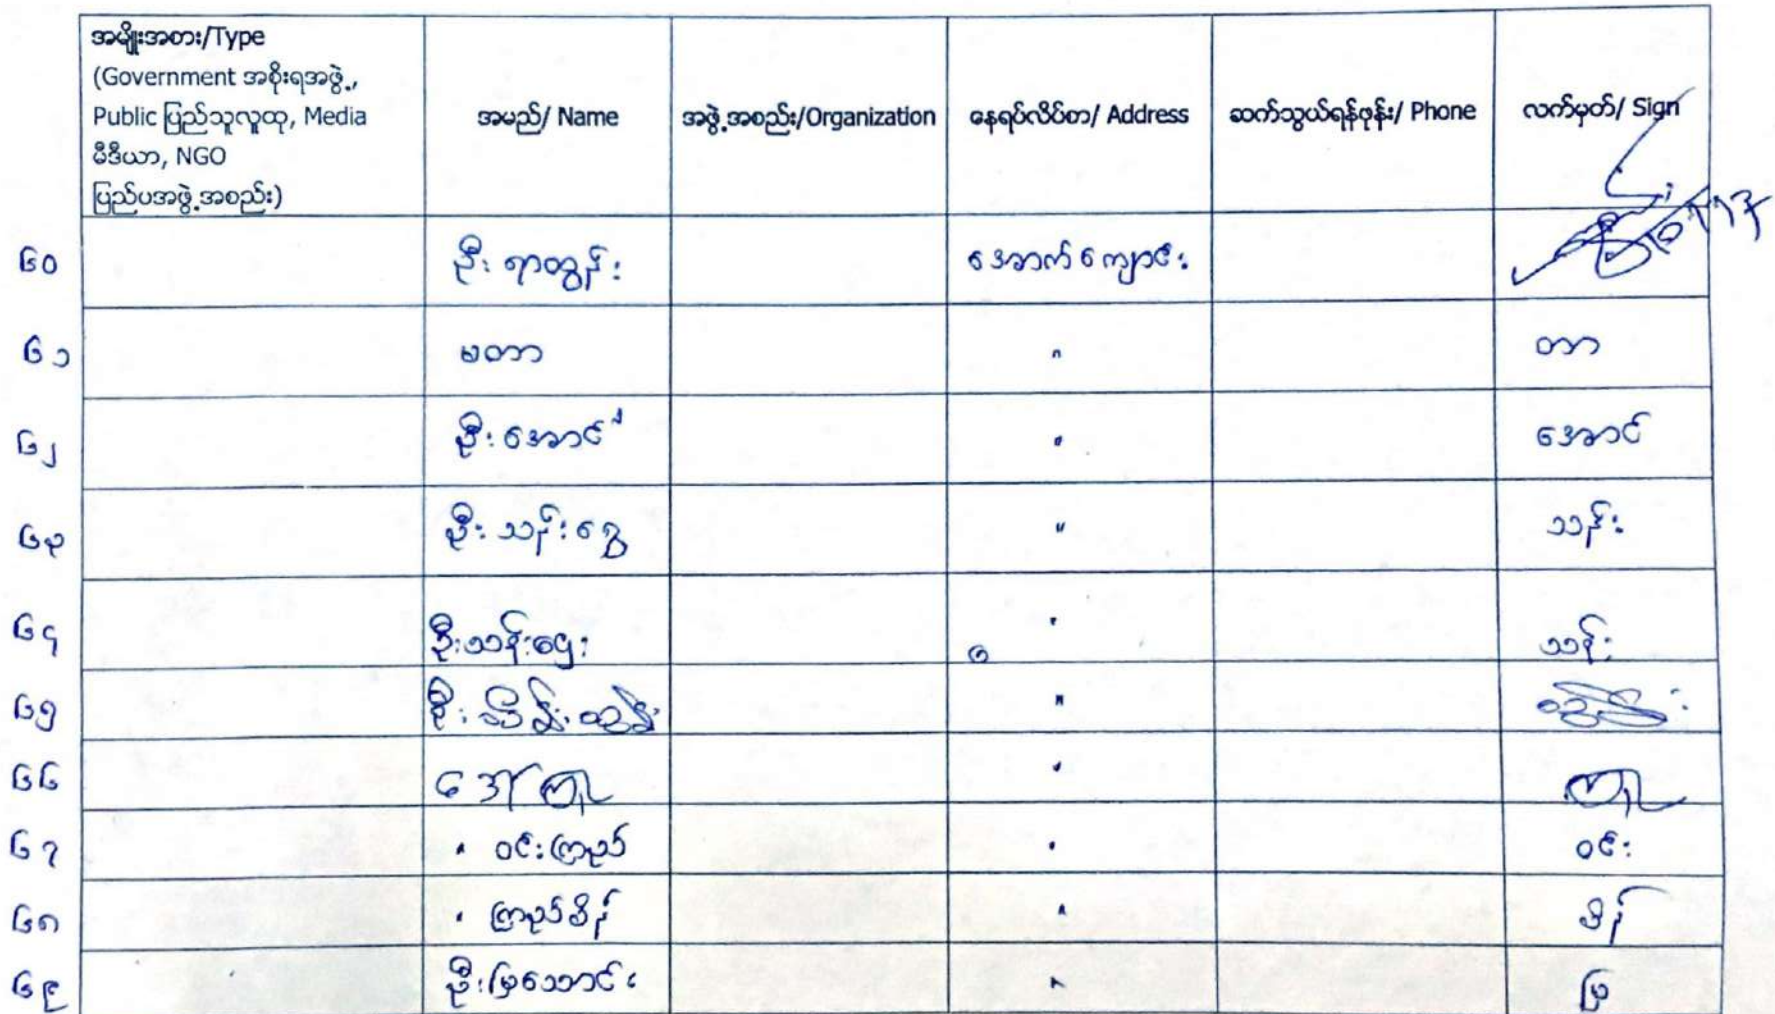 အမျိုးအစား/Type
(Government အစိုးရအဖွဲ့,
Public ပြည်သူလူထု, Media
မီဒီယာ, NGO
ပြည်ပအဖွဲ့အစည်း)
အမည်/ Name
အဖွဲ့အစည်း/Organization
နေရပ်လိပ်စာ/ Address
ဆက်သွယ်ရန်ဖုန်း/ Phone
လက်မှတ်/ Sign
၆၀ ဦးရာထွန်း အောက်ကျောင်း
၆၁ မတာ " တာ
၆၂ ဦးအောင် " အောင်
၆၃ ဦးသန်းရွှေ " သန်း
၆၄ ဦးသန်းဌေး " သန်း
၆၅ ဦးသိန်းထွန်း "
၆၆ ဒေါ် "
၆၇ " ဝင်းကြည် " ဝင်း
၆၈ " ကြည်စိန် " စိန်
၆၉ ဦးမြသောင်း " မြ